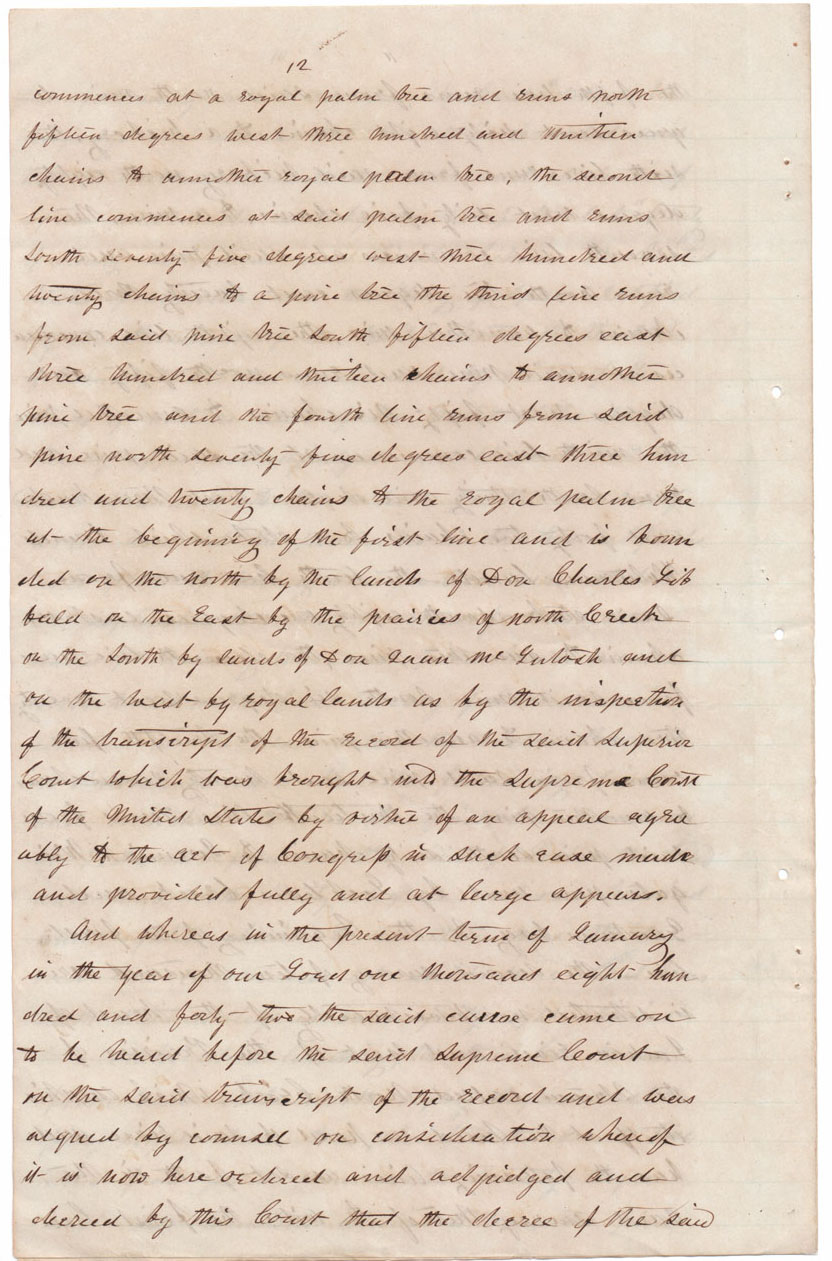 12
commences at a royal palm tree and runs north
fifteen degrees west three hundred and thirteen
chains to annother royal palm tree, the second
line commences at said palm tree and runs
South seventy five degrees west three hundred and
twenty chains to a pine tree the third line runs
from said pine tree South fifteen degrees east
three hundred and thirteen chains to annother
pine tree and the fourth line runs from said
pine north seventy five degrees east three hun
dred and twenty chains to the royal palm tree
at the beginning of the first line and is boun
ded on the north by the lands of Don Charles Sib
bald on the East by the prairies of north Creek
on the South by lands of Don Juan McIntosh and
on the west by royal lands as by the inspection
of the transcript of the record of the said Superior
Court which was brought into the Supreme Court
of the United States by virtue of an appeal agree
ably to the act of Congress in such case made
and provided fully and at large appears.
And whereas in the present term of January
in the year of our Lord one thousand eight hun
dred and forty two the said cause came on
to be heard before the said Supreme Court
on the said transcript of the record and was
argued by counsel on consideration whereof
it is now here ordered and adjudged and
decreed by this Court that the decree of the said